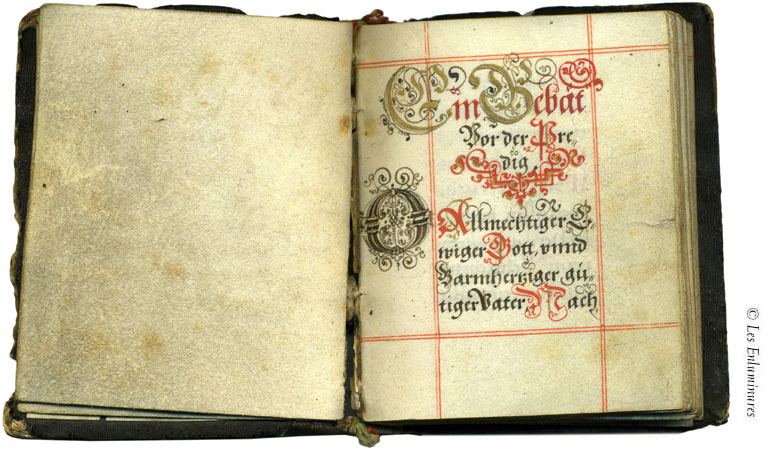 Ein Gebät
Vor der Pre=
dig.
O Allmechtiger E=
wiger Gott, vnnd
Barmhertziger, gü=
tiger Vater Nach
© Les Enluminures